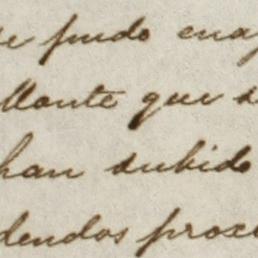 se pudo enaj
llante que s
han subido
dendos proce